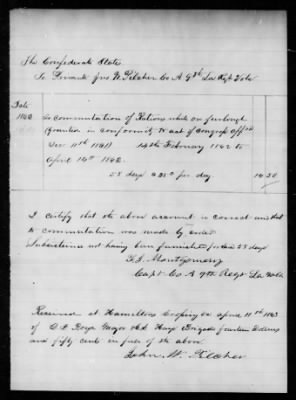 The Confederate States
To Private Jno W. Pilcher Co A 9th La Regt Vols
Date
1862
To commutation of Rations while on furlough
Granted in conformity to act of Congress App'd
Dec 11th 1861 14th February 1862 to
April 14th 1862.
58 days @ 25c per day
14.50
I certify that the above account is correct and that
the commutation was made by order
Subsistence not having been furnished for the 58 days
Montgomery
Capt Co A 9th Regt La Vols
Received at Hamiltons Crossing Va April 11th 1863
of Major Hays Brigade fourteen Dollars
and fifty cents in full of the above
John W. Pilcher